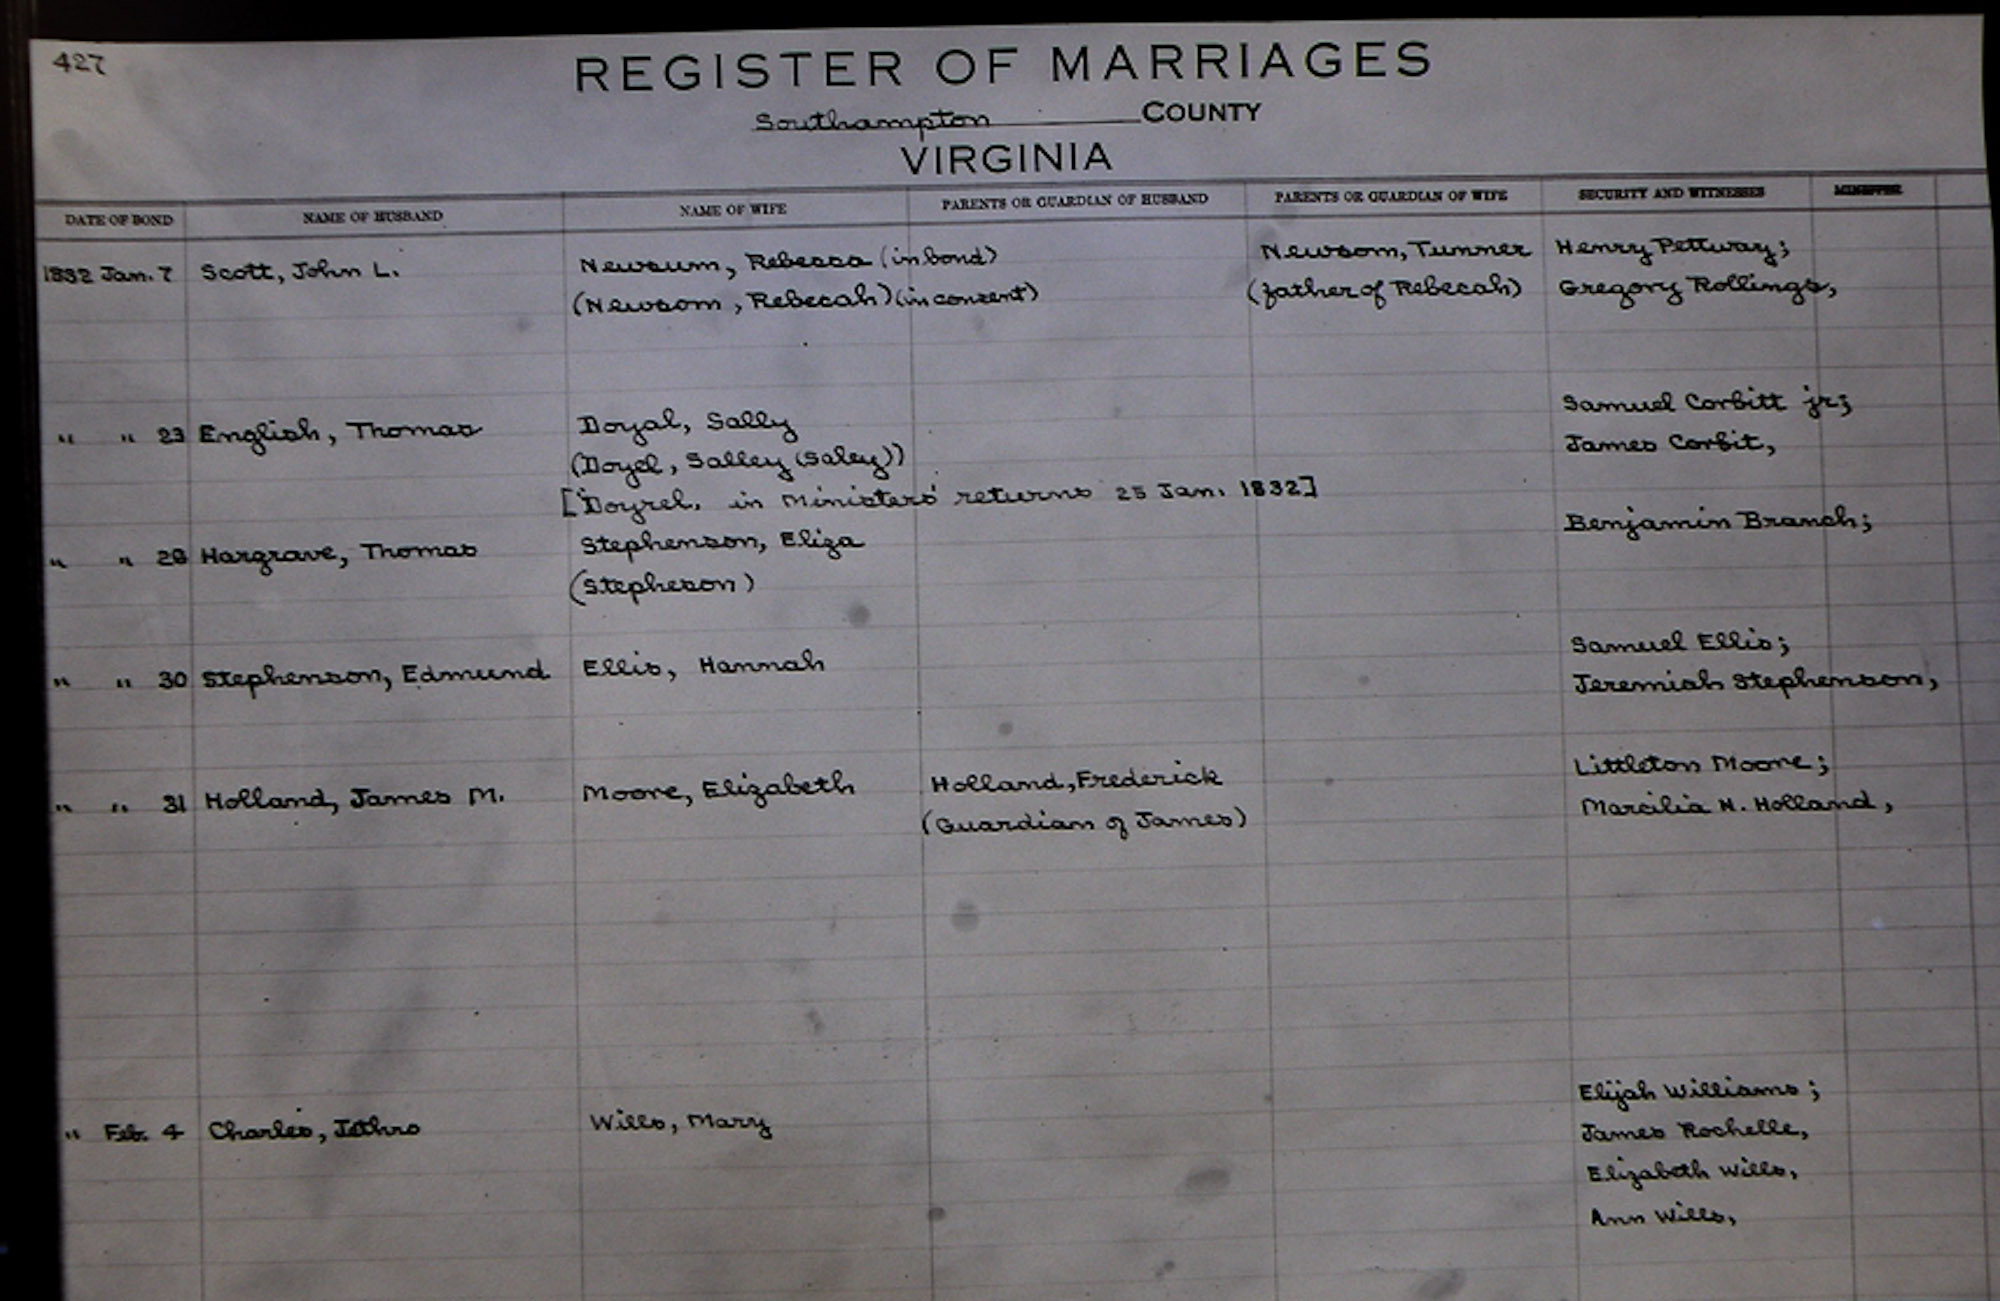 427
REGISTER OF MARRIAGES
Southampton COUNTY
VIRGINIA
DATE OF BOND NAME OF HUSBAND NAME OF WIFE PARENTS OR GUARDIAN OF HUSBAND PARENTS OR GUARDIAN OF WIFE SECURITY AND WITNESSES MINISTER
1832 Jan. 7 Scott, John L. Newsum, Rebecca (in bond) Newsom, Tummer Henry Pettway;
(Newsom, Rebecah) (in consent) (father of Rebecah) Gregory Rollings,
Samuel Corbitt jr;
" " 23 English, Thomas Doyal, Sally James Corbit,
(Doyel, Salley (Saley))
["Doyrel, in Ministers' returns 25 Jan. 1832]
Benjamin Branch;
" " 28 Hargrave, Thomas Stephenson, Eliza
(Stepheson)
Samuel Ellis;
" " 30 Stephenson, Edmund Ellis, Hannah Jeremiah Stephenson,
Littleton Moore;
" " 31 Holland, James M. Moore, Elizabeth Holland, Frederick Marcilia N. Holland,
(Guardian of James)
Elijah Williams;
" Feb. 4 Charles, Jethro Wills, Mary James Rochelle,
Elizabeth Wills,
Ann Wills,